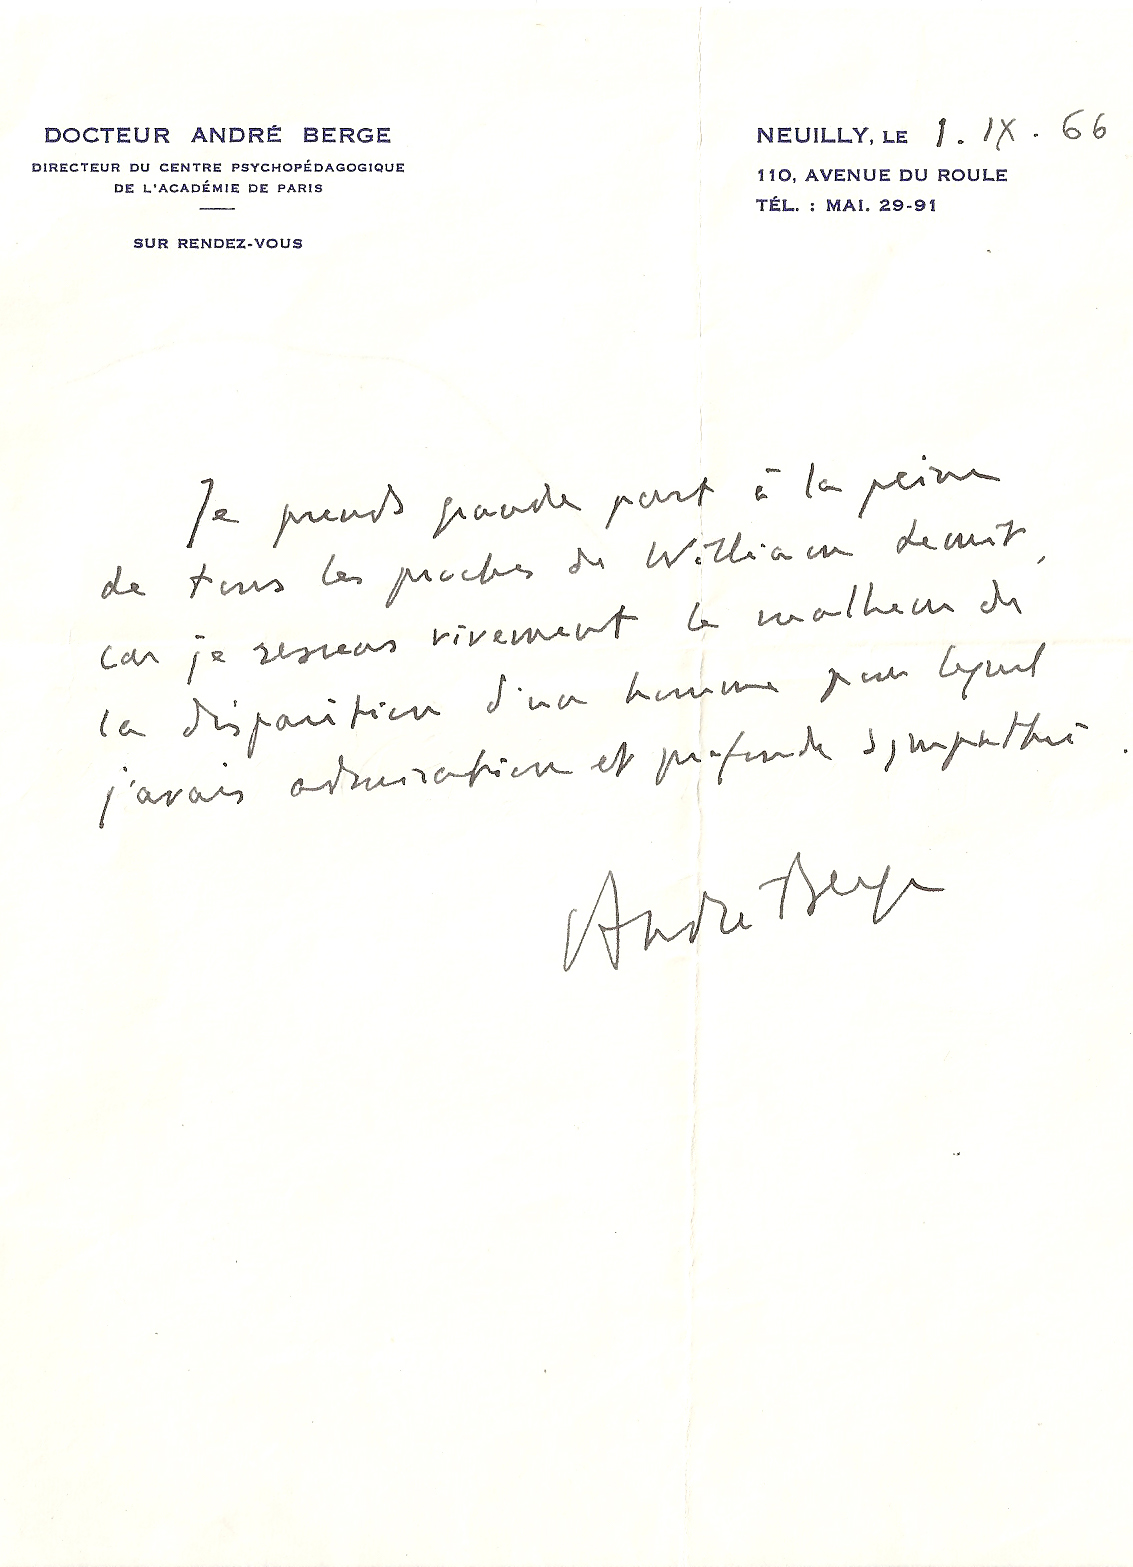 DOCTEUR ANDRÉ BERGE
DIRECTEUR DU CENTRE PSYCHOPÉDAGOGIQUE
DE L'ACADÉMIE DE PARIS
SUR RENDEZ-VOUS
NEUILLY, LE 1. IX. 66
110, AVENUE DU ROULE
TÉL. : MAI. 29-91
Je prends grande part à la peine
de tous les proches de William Lemit,
car je ressens vivement le malheur de
la disparition d'un homme pour lequel
j'avais admiration et profonde sympathie.
André Berge